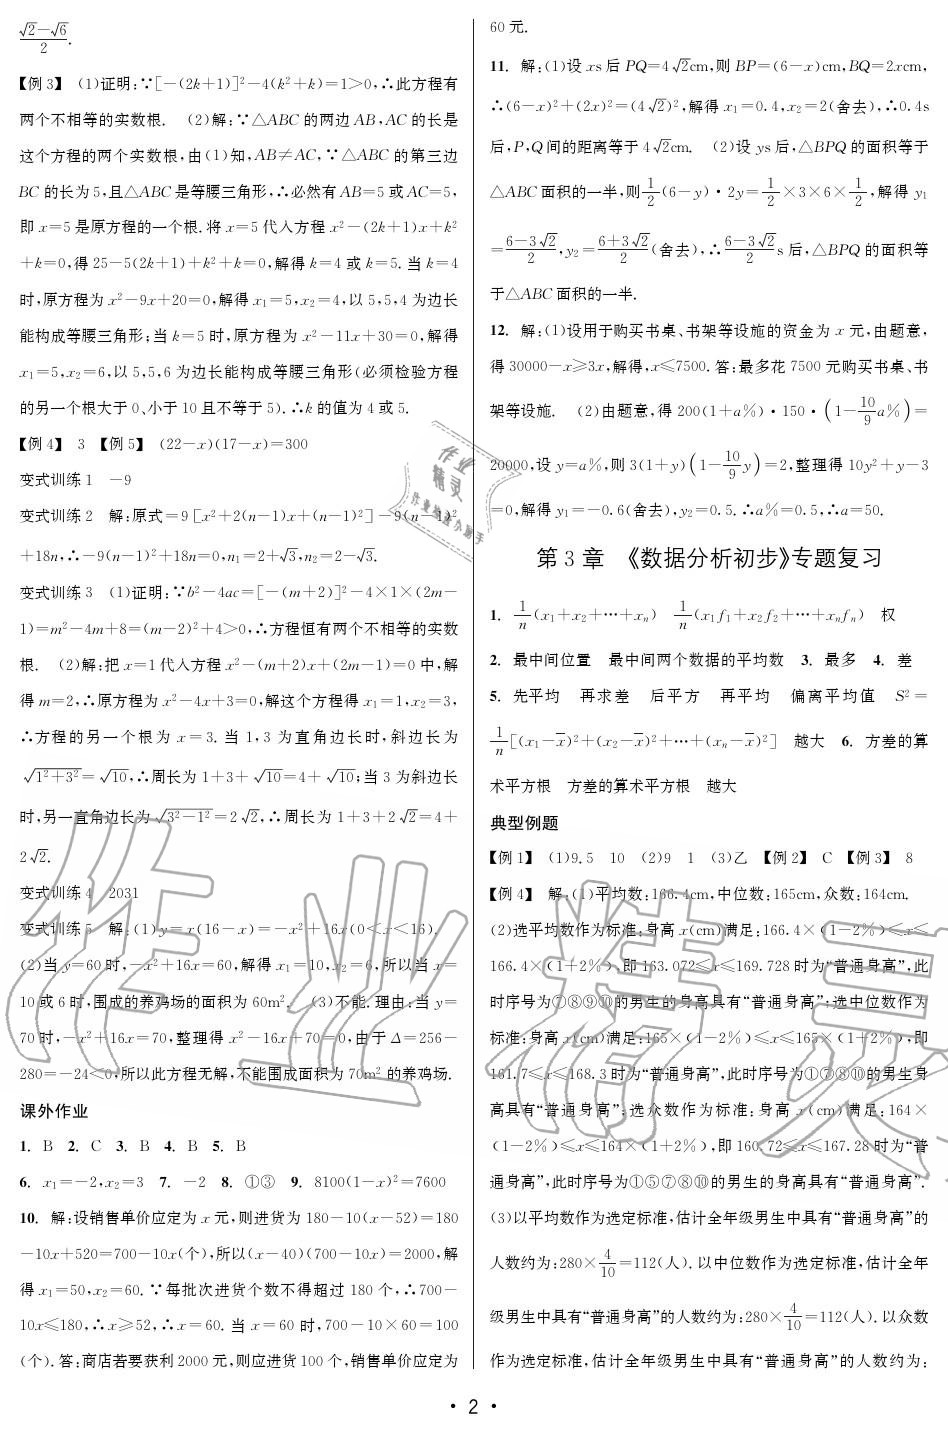 (√2－√6)/2.
【例 3】 (1)证明:∵[－(2k＋1)]²－4(k²＋k)＝1＞0,∴此方程有
两个不相等的实数根. (2)解:∵△ABC 的两边 AB,AC 的长是
这个方程的两个实数根,由(1)知,AB≠AC,∵△ABC 的第三边
BC 的长为 5,且△ABC 是等腰三角形,∴必然有 AB＝5 或 AC＝5,
即 x＝5 是原方程的一个根.将 x＝5 代人方程 x²－(2k＋1)x＋k²
＋k＝0,得 25－5(2k＋1)＋k²＋k＝0,解得 k＝4 或 k＝5.当 k＝4
时,原方程为 x²－9x＋20＝0,解得 x₁＝5,x₂＝4,以 5,5,4 为边长
能构成等腰三角形;当 k＝5 时,原方程为 x²－11x＋30＝0,解得
x₁＝5,x₂＝6,以 5,5,6 为边长能构成等腰三角形(必须检验方程
的另一个根大于 0、小于 10 且不等于 5).∴k 的值为 4 或 5.
【例 4】 3 【例 5】 (22－x)(17－x)＝300
变式训练 1 －9
变式训练 2 解:原式＝9[x²＋2(n－1)x＋(n－1)²]－9(n－1)²
＋18n,∴－9(n－1)²＋18n＝0,n₁＝2＋√3,n₂＝2－√3.
变式训练 3 (1)证明:∵b²－4ac＝[－(m＋2)]²－4×1×(2m－
1)＝m²－4m＋8＝(m－2)²＋4＞0,∴方程恒有两个不相等的实数
根. (2)解:把 x＝1 代人方程 x²－(m＋2)x＋(2m－1)＝0 中,解
得 m＝2,∴原方程为 x²－4x＋3＝0,解这个方程得 x₁＝1,x₂＝3,
∴方程的另一个根为 x＝3.当 1,3 为直角边长时,斜边长为
√(1²＋3²)＝√10,∴周长为 1＋3＋√10＝4＋√10;当 3 为斜边长
时,另一直角边长为√(3²－1²)＝2√2,∴周长为 1＋3＋2√2＝4＋
2√2.
变式训练 4 2031
变式训练 5 解:(1)y＝x(16－x)＝－x²＋16x(0＜x＜16).
(2)当 y＝60 时,－x²＋16x＝60,解得 x₁＝10,x₂＝6,所以当 x＝
10 或 6 时,围成的养鸡场的面积为 60m². (3)不能.理由:当 y＝
70 时,－x²＋16x＝70,整理得 x²－16x＋70＝0,由于 Δ＝256－
280＝－24＜0,所以此方程无解,不能围成面积为 70m² 的养鸡场.
课外作业
1. B 2. C 3. B 4. B 5. B
6. x₁＝－2,x₂＝3 7. －2 8. ①③ 9. 8100(1－x)²＝7600
10. 解:设销售单价应定为 x 元,则进货为 180－10(x－52)＝180
－10x＋520＝700－10x(个),所以(x－40)(700－10x)＝2000,解
得 x₁＝50,x₂＝60.∵每批次进货个数不得超过 180 个,∴700－
10x≤180,∴x≥52,∴x＝60.当 x＝60 时,700－10×60＝100
(个).答:商店若要获利 2000 元,则应进货 100 个,销售单价应定为
60 元.
11. 解:(1)设 xs 后 PQ＝4√2cm,则 BP＝(6－x)cm,BQ＝2xcm,
∴(6－x)²＋(2x)²＝(4√2)²,解得 x₁＝0.4,x₂＝2(舍去),∴0.4s
后,P,Q 间的距离等于 4√2cm. (2)设 ys 后,△BPQ 的面积等于
△ABC 面积的一半,则 1/2(6－y)·2y＝1/2×3×6×1/2,解得 y₁
＝(6－3√2)/2,y₂＝(6＋3√2)/2(舍去),∴(6－3√2)/2 s 后,△BPQ 的面积等
于△ABC 面积的一半.
12. 解:(1)设用于购买书桌、书架等设施的资金为 x 元,由题意,
得 30000－x≥3x,解得,x≤7500.答:最多花 7500 元购买书桌、书
架等设施. (2)由题意,得 200(1＋a%)·150·(1－10/9 a%)＝
20000,设 y＝a%,则 3(1＋y)(1－10/9 y)＝2,整理得 10y²＋y－3
＝0,解得 y₁＝－0.6(舍去),y₂＝0.5.∴a%＝0.5,∴a＝50.
第 3 章 《数据分析初步》专题复习
1. 1/n(x₁＋x₂＋…＋xₙ) 1/n(x₁f₁＋x₂f₂＋…＋xₙfₙ) 权
2. 最中间位置 最中间两个数据的平均数 3. 最多 4. 差
5. 先平均 再求差 后平方 再平均 偏离平均值 S²＝
1/n[(x₁－x̅)²＋(x₂－x̅)²＋…＋(xₙ－x̅)²] 越大 6. 方差的算
术平方根 方差的算术平方根 越大
典型例题
【例 1】 (1)9.5 10 (2)9 1 (3)乙 【例 2】 C 【例 3】 8
【例 4】 解:(1)平均数:166.4cm,中位数:165cm,众数:164cm.
(2)选平均数作为标准:身高 x(cm)满足:166.4×(1－2%)≤x≤
166.4×(1＋2%),即 163.072≤x≤169.728 时为“普通身高”,此
时序号为⑦⑧⑨⑩的男生的身高具有“普通身高”;选中位数作为
标准:身高 x(cm)满足:165×(1－2%)≤x≤165×(1＋2%),即
161.7≤x≤168.3 时为“普通身高”,此时序号为①⑦⑧⑩的男生身
高具有“普通身高”;选众数作为标准:身高 x(cm)满足:164×
(1－2%)≤x≤164×(1＋2%),即 160.72≤x≤167.28 时为“普
通身高”,此时序号为①⑤⑦⑧⑩的男生的身高具有“普通身高”.
(3)以平均数作为选定标准,估计全年级男生中具有“普通身高”的
人数约为:280×4/10＝112(人).以中位数作为选定标准,估计全年
级男生中具有“普通身高”的人数约为:280×4/10＝112(人).以众数
作为选定标准,估计全年级男生中具有“普通身高”的人数约为:
· 2 ·
作业
精灵
作业检查小助手
作业精灵